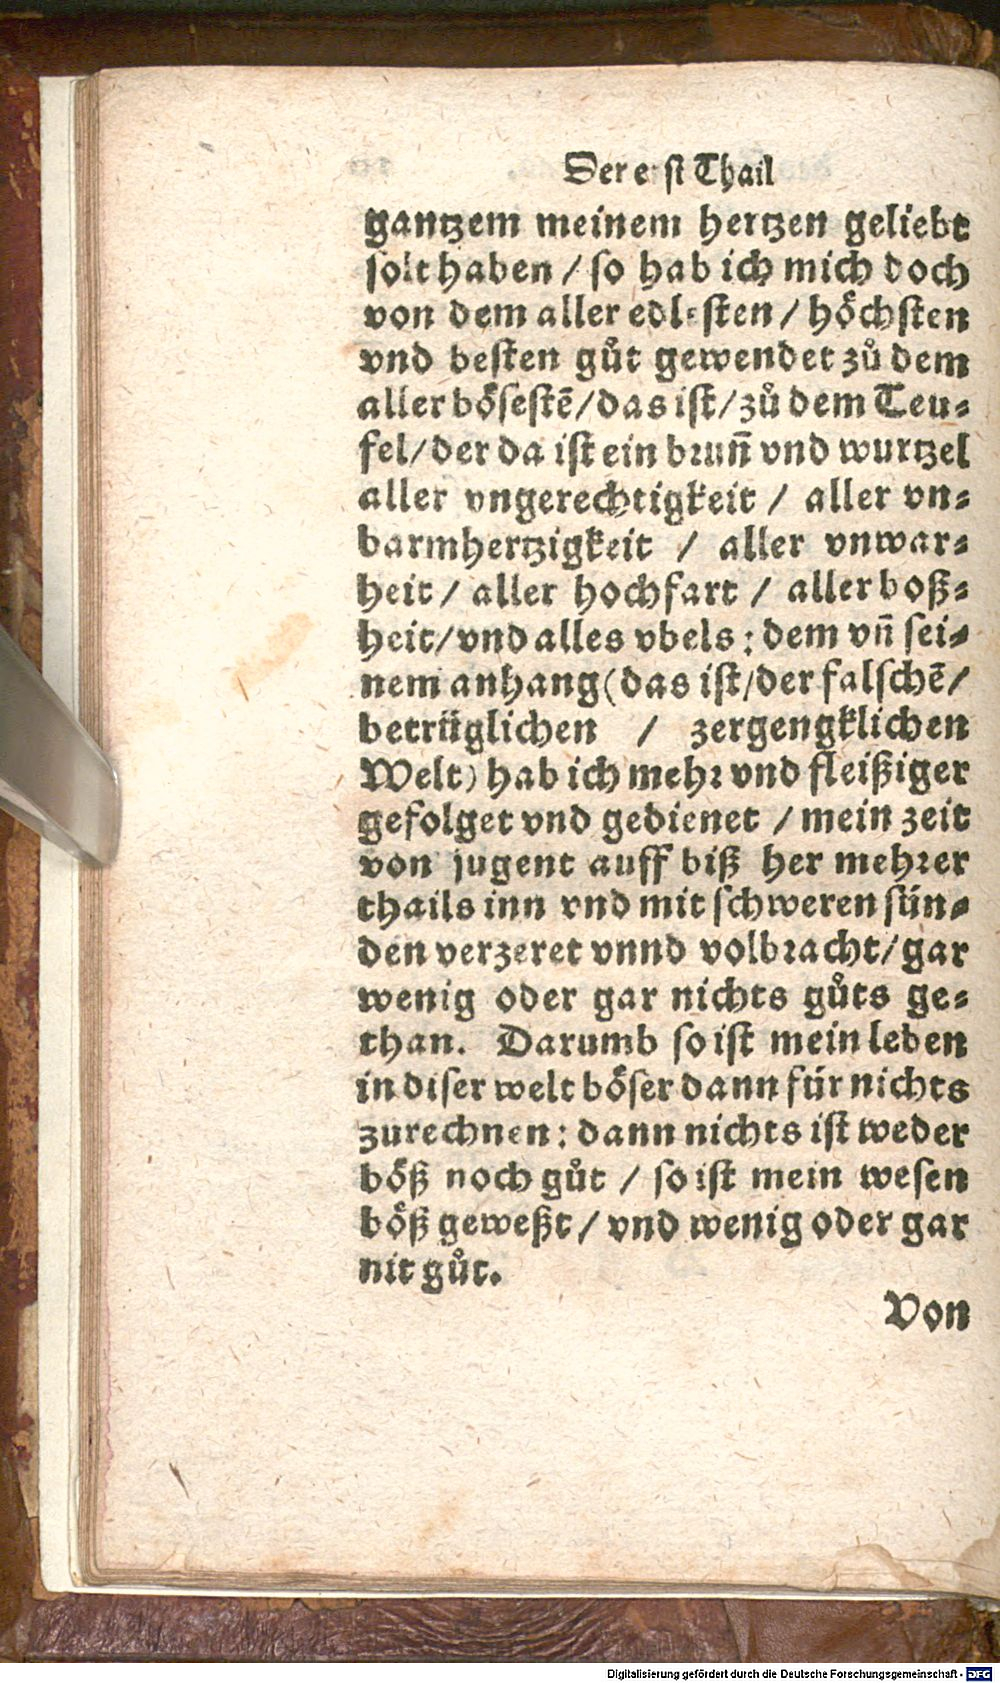 Der erst Thail
gantzem meinem hertzen geliebt
solt haben / so hab ich mich doch
von dem aller edlesten / hoͤchsten
vnd besten guͦt gewendet zuͦ dem
aller boͤsestē/das ist/zuͦ dem Teu-
fel/der da ist ein brun̄ vnd wurtzel
aller vngerechtigkeit / aller vn-
barmhertzigkeit / aller vnwar-
heit / aller hochfart / aller boß-
heit/vnd alles vbels : dem vn̄ sei-
nem anhang(das ist/der falschē/
betrüglichen / zergengklichen
Welt) hab ich mehr vnd fleißiger
gefolget vnd gedienet / mein zeit
von jugent auff biß her mehrer
thails inn vnd mit schweren sün-
den verzeret vnnd volbracht/gar
wenig oder gar nichts guͦts ge-
than. Darumb so ist mein leben
in diser welt boͤser dann für nichts
zurechnen : dann nichts ist weder
boͤß noch guͦt / so ist mein wesen
boͤß geweßt / vnd wenig oder gar
nit guͦt.
Von
Digitalisierung gefördert durch die Deutsche Forschungsgemeinschaft - DFG